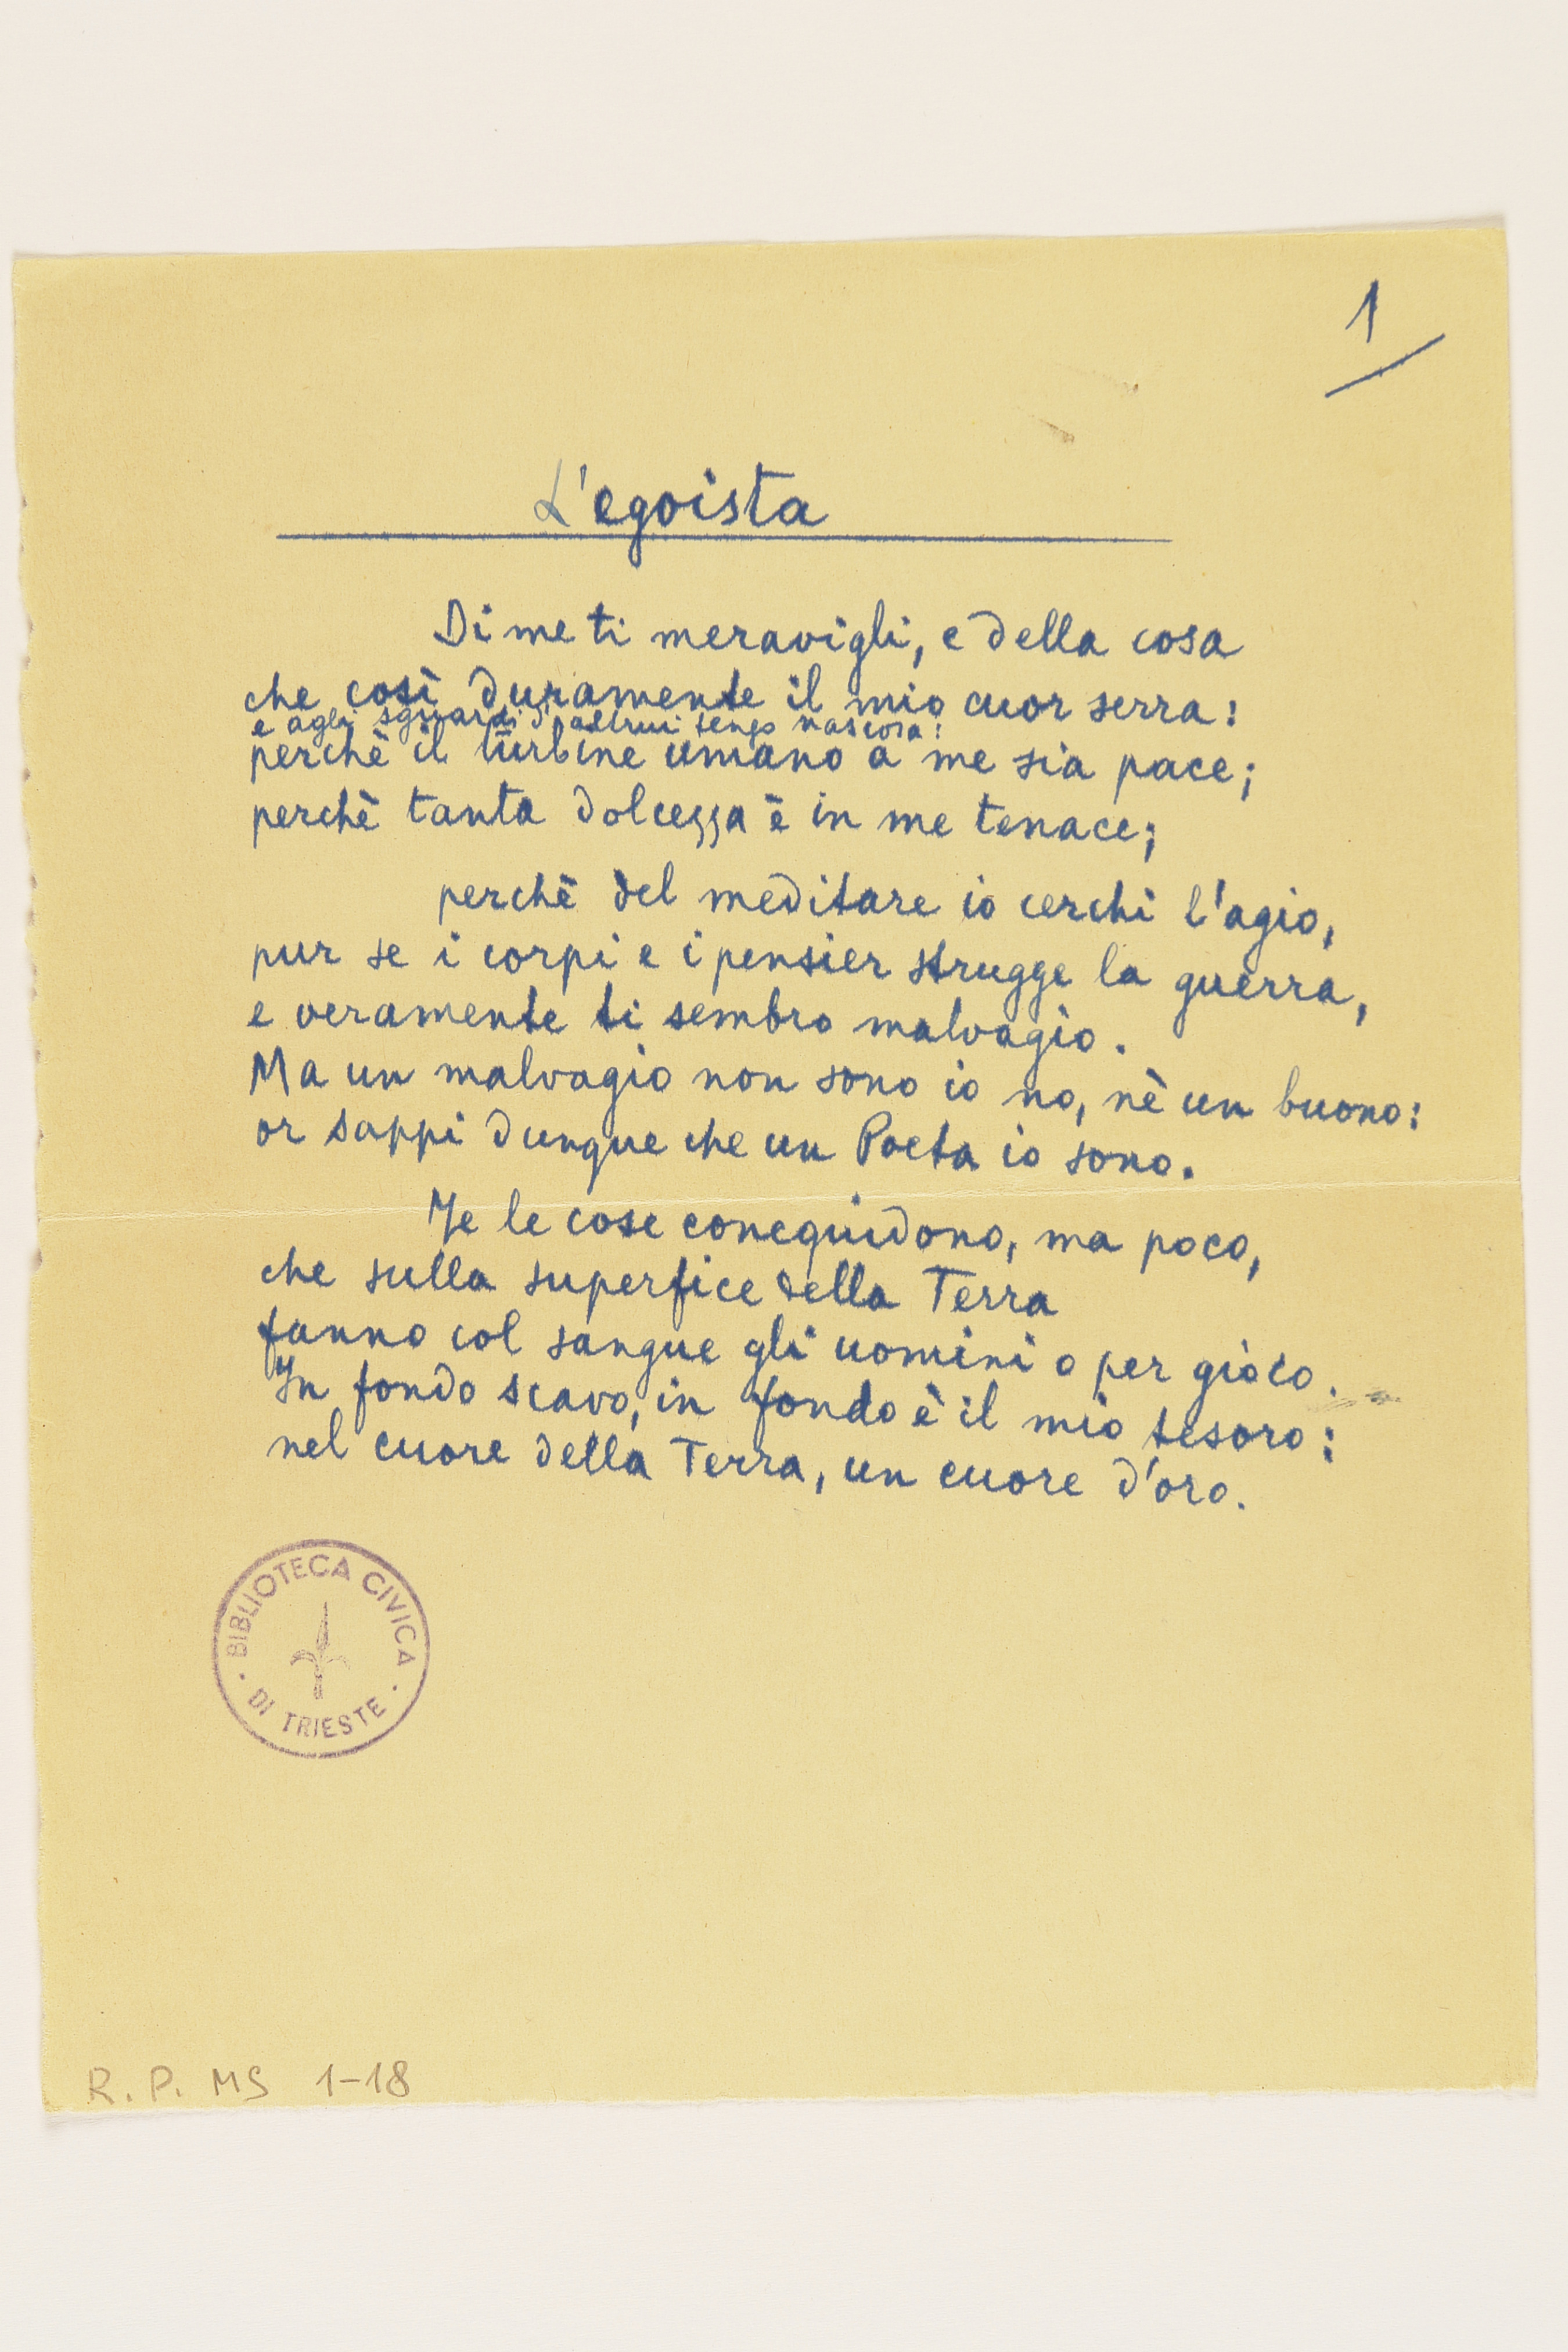 1
L'egoista
Di me ti meravigli, e della cosa
che così duramente il mio cuor serra:
e agli sguardi d'altrui tengo nascosa:
perchè il turbine umano a me sia pace;
perchè tanta dolcezza è in me tenace;
perchè del meditare io cerchi l'agio,
pur se i corpi e i pensier strugge la guerra,
e veramente ti sembro malvagio.
Ma un malvagio non sono io no, nè un buono:
or sappi dunque che un Poeta io sono.
Me le cose conquidono, ma poco,
che sulla superfice della Terra
fanno col sangue gli uomini o per gioco.
In fondo scavo, in fondo è il mio tesoro:
nel cuore della Terra, un cuore d'oro.
BIBLIOTECA CIVICA
DI TRIESTE
R. P. MS 1-18